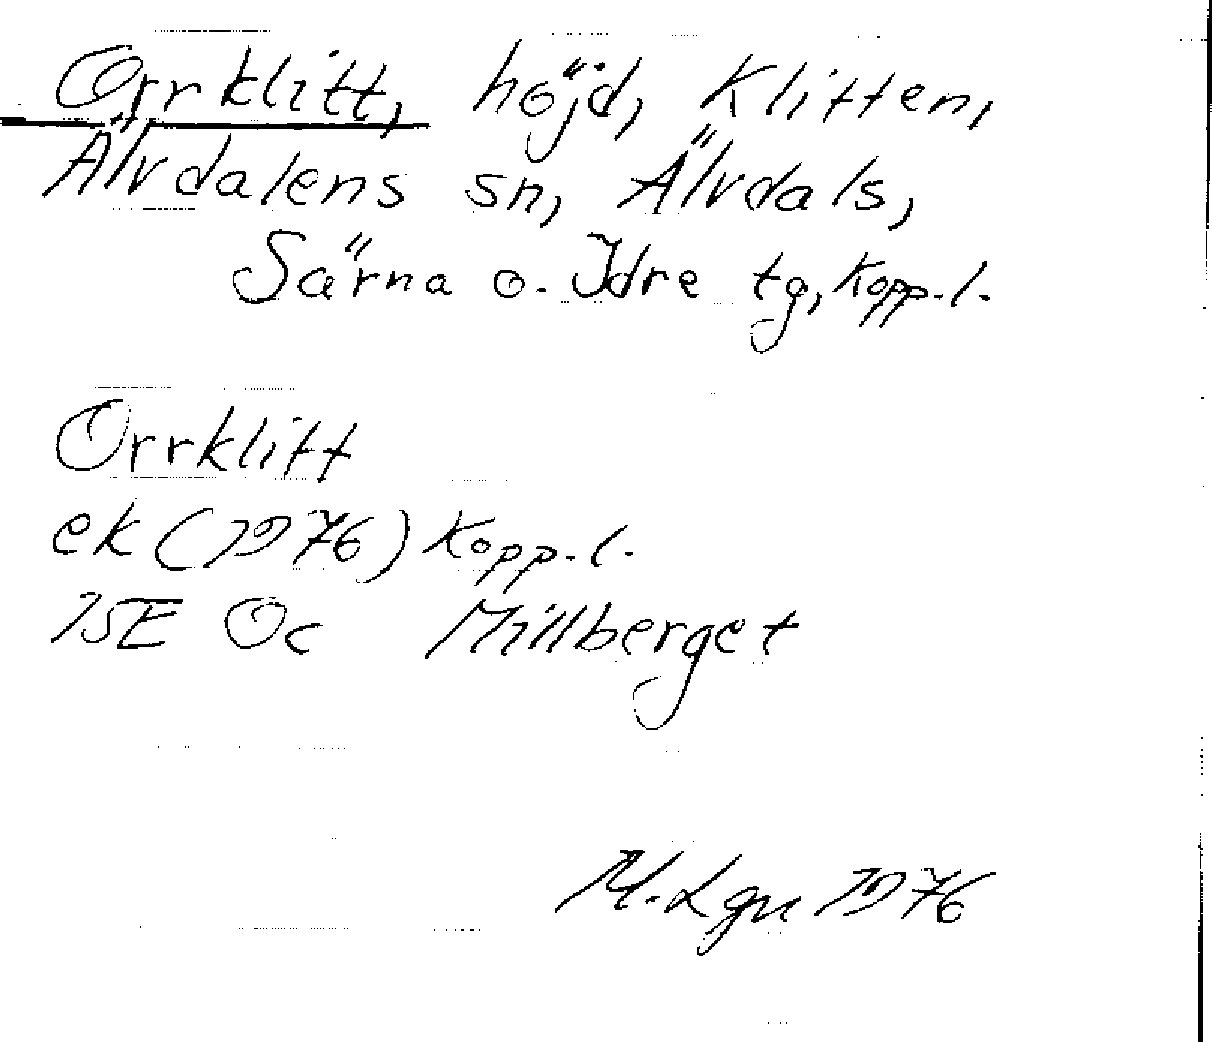 Orrklitt, höjd, Klitten,
Älvdalens sn, Älvdals,
Särna o. Idre tg, Kopp. l.
Orrklitt
ek (1976) Kopp. l.
15E Oc Millberget
M. Lgn 1976